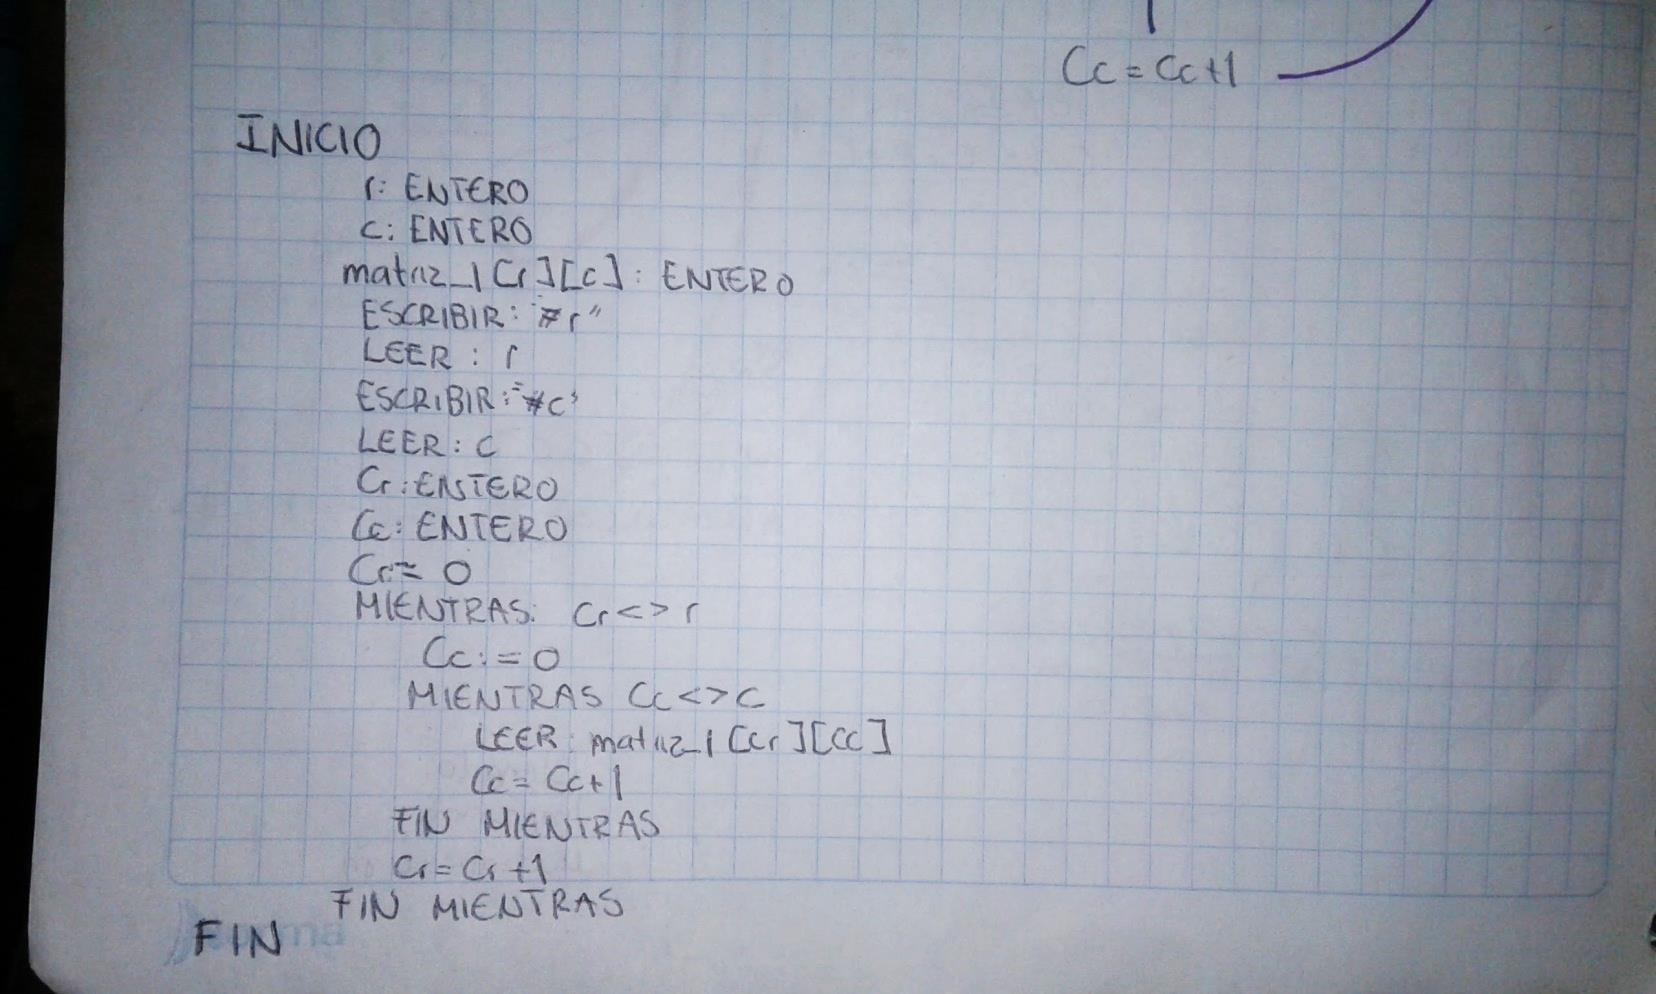 Cc = Cc+1
INICIO
r: ENTERO
c: ENTERO
matriz_1 [r][c]: ENTERO
ESCRIBIR: "#r"
LEER : r
ESCRIBIR: "#c"
LEER: c
Cr: ENTERO
Cc: ENTERO
Cr= 0
MIENTRAS: Cr<>r
Cc:=0
MIENTRAS Cc<>c
LEER: matriz_1 [Cr][Cc]
Cc= Cc+1
FIN MIENTRAS
Cr= Cr+1
FIN MIENTRAS
FIN